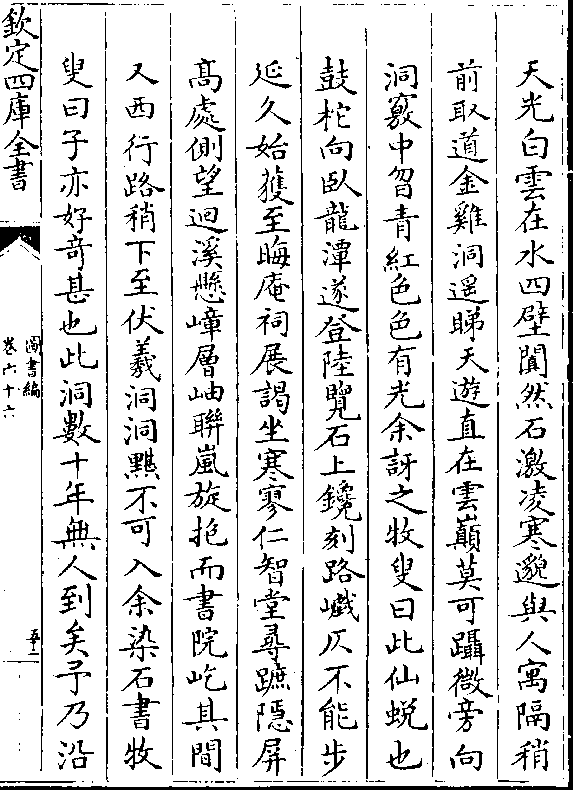 天光白雲在水四壁闃然石激凌寒邈與人寓隔稍
前取道金雞洞遥睇天遊直在雲巔莫可躡微旁向
洞竅中曶青紅色色有光余訝之牧叟曰此仙蜕也
鼓柁向臥龍潭遂登陸覽石上鑱刻路巇仄不能步
延久始獲至晦庵祠展謁坐寒寥仁智堂尋蹠隱屏
髙處側望迴溪懸嶂層岫聯嵐旋抱而書院屹其間
又西行路稍下至伏羲洞洞黮不可入余染石書牧
叟曰子亦好竒甚也此洞數十年無人到矣予乃沿
欽定四庫全書
圖書編
卷六十六